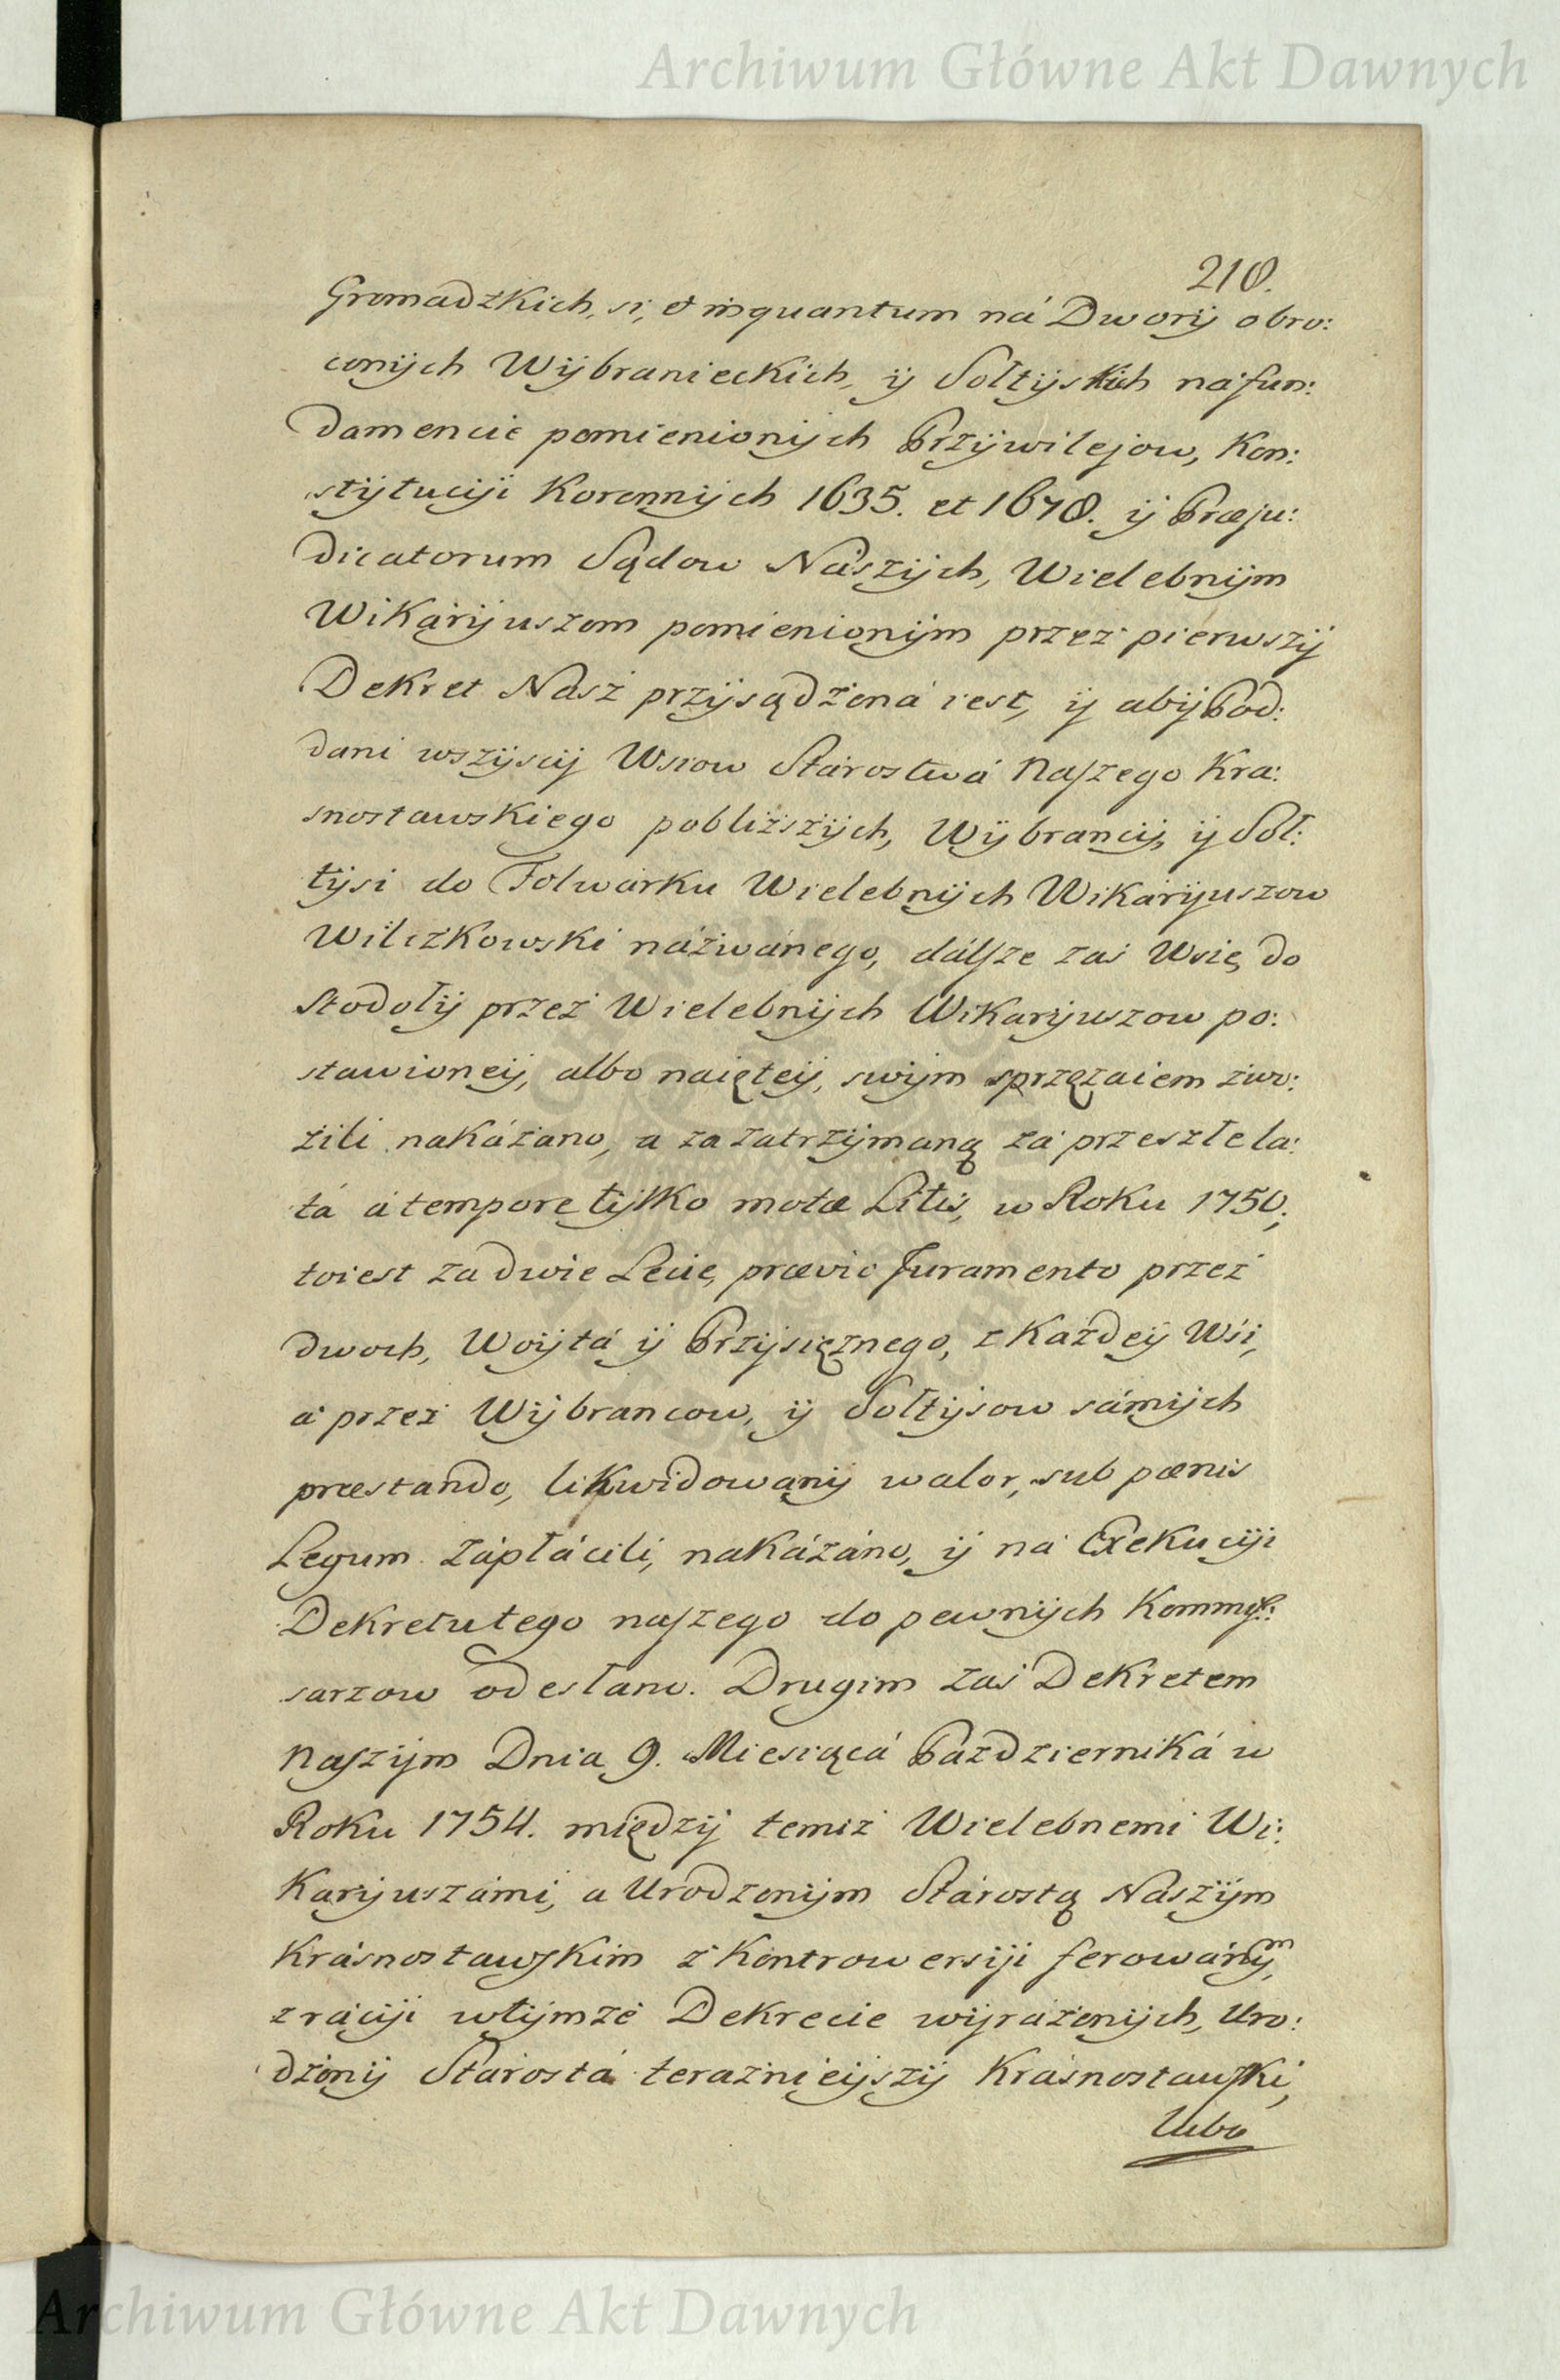 Archiwum Główne Akt Dawnych
218.
Gromadzkich, si, et inquantum ná Dworÿ obro:
conÿch Wÿbranieckich, ÿ Sołtÿskich ná fun:
damencie pomienionÿch Przÿwilejow, Kon:
stÿtucÿi Koronnÿch 1635. et 1678. ÿ Præju:
dicatorum Sądow Nászÿch, Wielebnÿm
Wikárÿuszom pomienionÿm przez pierwszÿ
Dekret Nász przÿsądzoná iest, ÿ abÿ Pod:
dani wszÿscÿ Wsiow Stárostwá Naszego Kra:
snostawskiego pobliższÿch, Wÿbrancÿ, ÿ Soł:
tÿsi do Folwárku Wielebnÿch Wikárÿuszow
Wilczkowski názwánego, dálsze zaś Wsie, do
Stodołÿ przez Wielebnÿch Wikarÿuszow po:
stawioneÿ, albo naięteÿ, swÿm sprzężaiem zwo:
zili nakázano, a za zatrzÿmaną zá przeszłe la:
tá á tempore tÿlko motæ Litis, w Roku 1750;
toiest za dwie Lecie, prævio Juramento przez
dwoch, Woÿtá ÿ Przÿsiężnego, z Każdeÿ Wśi,
á przez Wÿbrancow, ÿ Sołtÿsow sámÿch
præstando, likwidowanÿ walor, sub pœnis
Legum zápłácili, nakázáno, ÿ ná Exekucÿi
Dekretu tego naszego do pewnÿch Kommis:
sarzow odesłano. Drugim zaś Dekretem
Naszÿm Dnia 9. Miesiącá Pazdzierniká w
Roku 1754. międzÿ temiż Wielebnemi Wi:
Karÿuszámi, a Urodzonÿm Stárostą Naszÿm
Krásnostawskim z Kontrowersÿi ferowánÿm,
z rácÿi w tÿmże Dekrecie wÿrażonÿch, Uro:
dzonÿ Stárostá teraznieÿszÿ Krásnostawski,
Ubo
Archiwum Główne Akt Dawnych